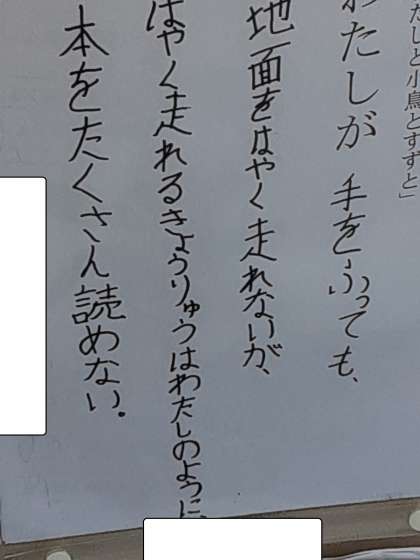 たしと小鳥とすずと」
わたしが手をふっても、
地面をはやく走れないが、
はやく走れるきょうりゅうはわたしのように、
本をたくさん読めない。